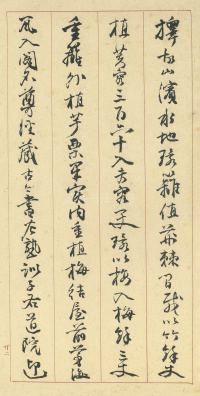 擇故山濱水地環籬植荊棘間栽以竹餘丈
植芙蓉三百六十入芙蓉二丈環以梅入梅餘三丈
重籬外植芋栗果實內重植梅結屋前茅後
瓦入閣名尊經藏古今書左塾訓子右道院迎